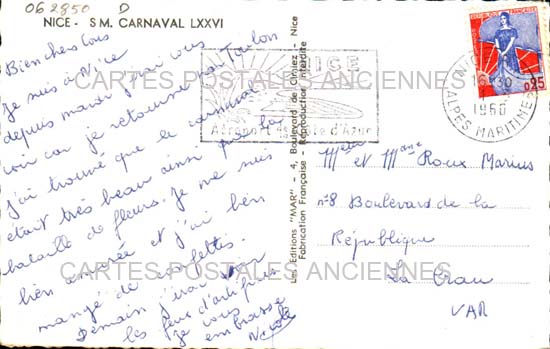 062850 D
NICE - S M. CARNAVAL LXXVI
Bien chers tous
Je suis à Nice
depuis mardi j'irai vous
voir car je retourne par Toulon
j'ai trouvé que le carnaval
était très beau ainsi que la
bataille de fleurs. Je me suis
bien amusée et j'ai bien
mangé de confettis.
Demain j'irai voir
les feux d'artifices
Je vous embrasse
Nicole
Les Editions "MAR" - 4, Boulevard de Cimiez - Nice
Fabrication Française - Reproduction Interdite
NICE
Aéroport de la Côte d'Azur
REPUBLIQUE FRANÇAISE
0,25
NICE
1960
ALPES MARITIMES
Mr et Mme Roux Marius
n°8 Boulevard de la
République
La Crau
VAR
CARTES POSTALES ANCIENNES
CARTES POSTALES ANCIENNES